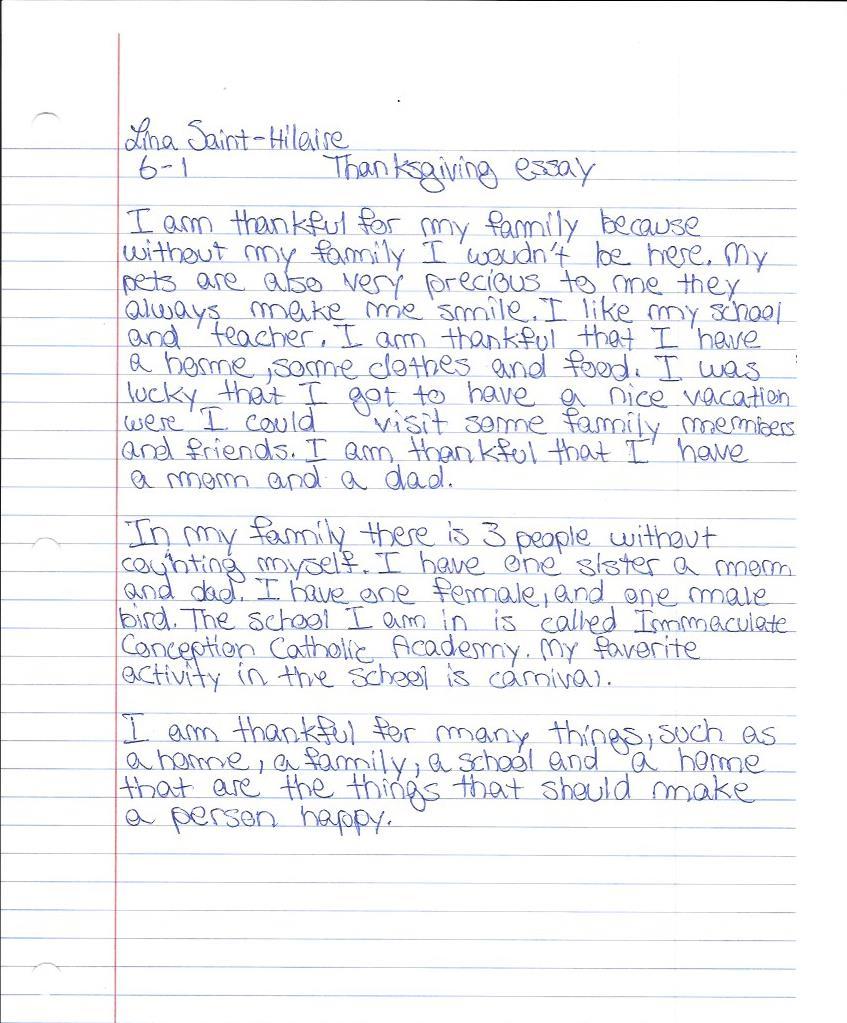 Lina Saint-Hilaire
6-1 Thanksgiving essay
I am thankful for my family because
without my family I woudn't be here. My
pets are also very precious to me they
always make me smile. I like my school
and teacher. I am thankful that I have
a home, some clothes and food. I was
lucky that I got to have a nice vacation
were I could visit some family members
and friends. I am thankful that I have
a mom and a dad.
In my family there is 3 people without
counting myself. I have one sister a mom
and dad. I have one female, and one male
bird. The school I am in is called Immaculate
Conception Catholic Academy. My favorite
activity in the school is carnival.
I am thankful for many things, such as
a home, a family, a school and a home
that are the things that should make
a person happy.